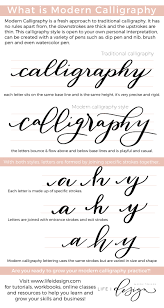 What is Modern Calligraphy
Modern Calligraphy is a fresh approach to traditional calligraphy. It has
no rules apart from, the downstrokes are thick and the upstrokes are
thin. This calligraphy style is open to your own personal interpretation,
can be created with a variety of pens such as dip pen and nib, brush
pen and even watercolor pen.
Traditional calligraphy
calligraphy
each letter sits on the same base line and is the same height, it's very precise and rigid.
Modern calligraphy style
calligraphy
the letters bounce a flow above and below base lines and is playful and casual
With both styles letters are formed by joining specific strokes together
a h y
Each letter is made up of specific strokes.
a h y
Letters are joined with entrance strokes and exit strokes
a h y
Modern calligraphy lettering uses the same strokes but is varied in size and shape
Are you ready to grow your modern calligraphy practice?
Visit www.lifeidesign.com
for tutorials, workbooks, online classes
and resources to help you learn and
grow your skills and business!
LIFE i
design